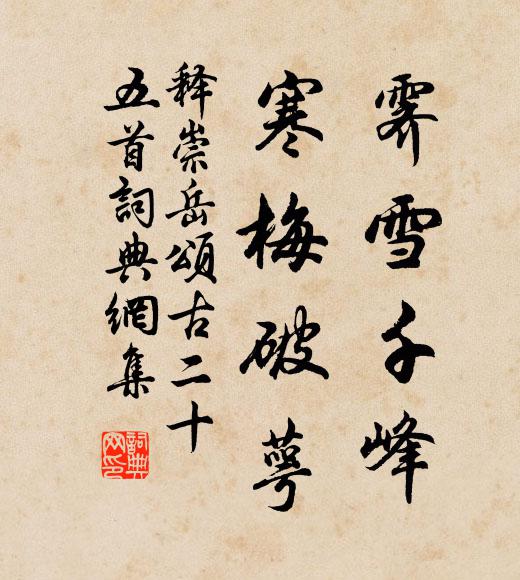 霽雪千峰
寒梅破萼
释崇岳頌古二十
五首詞典網集
詞典网印